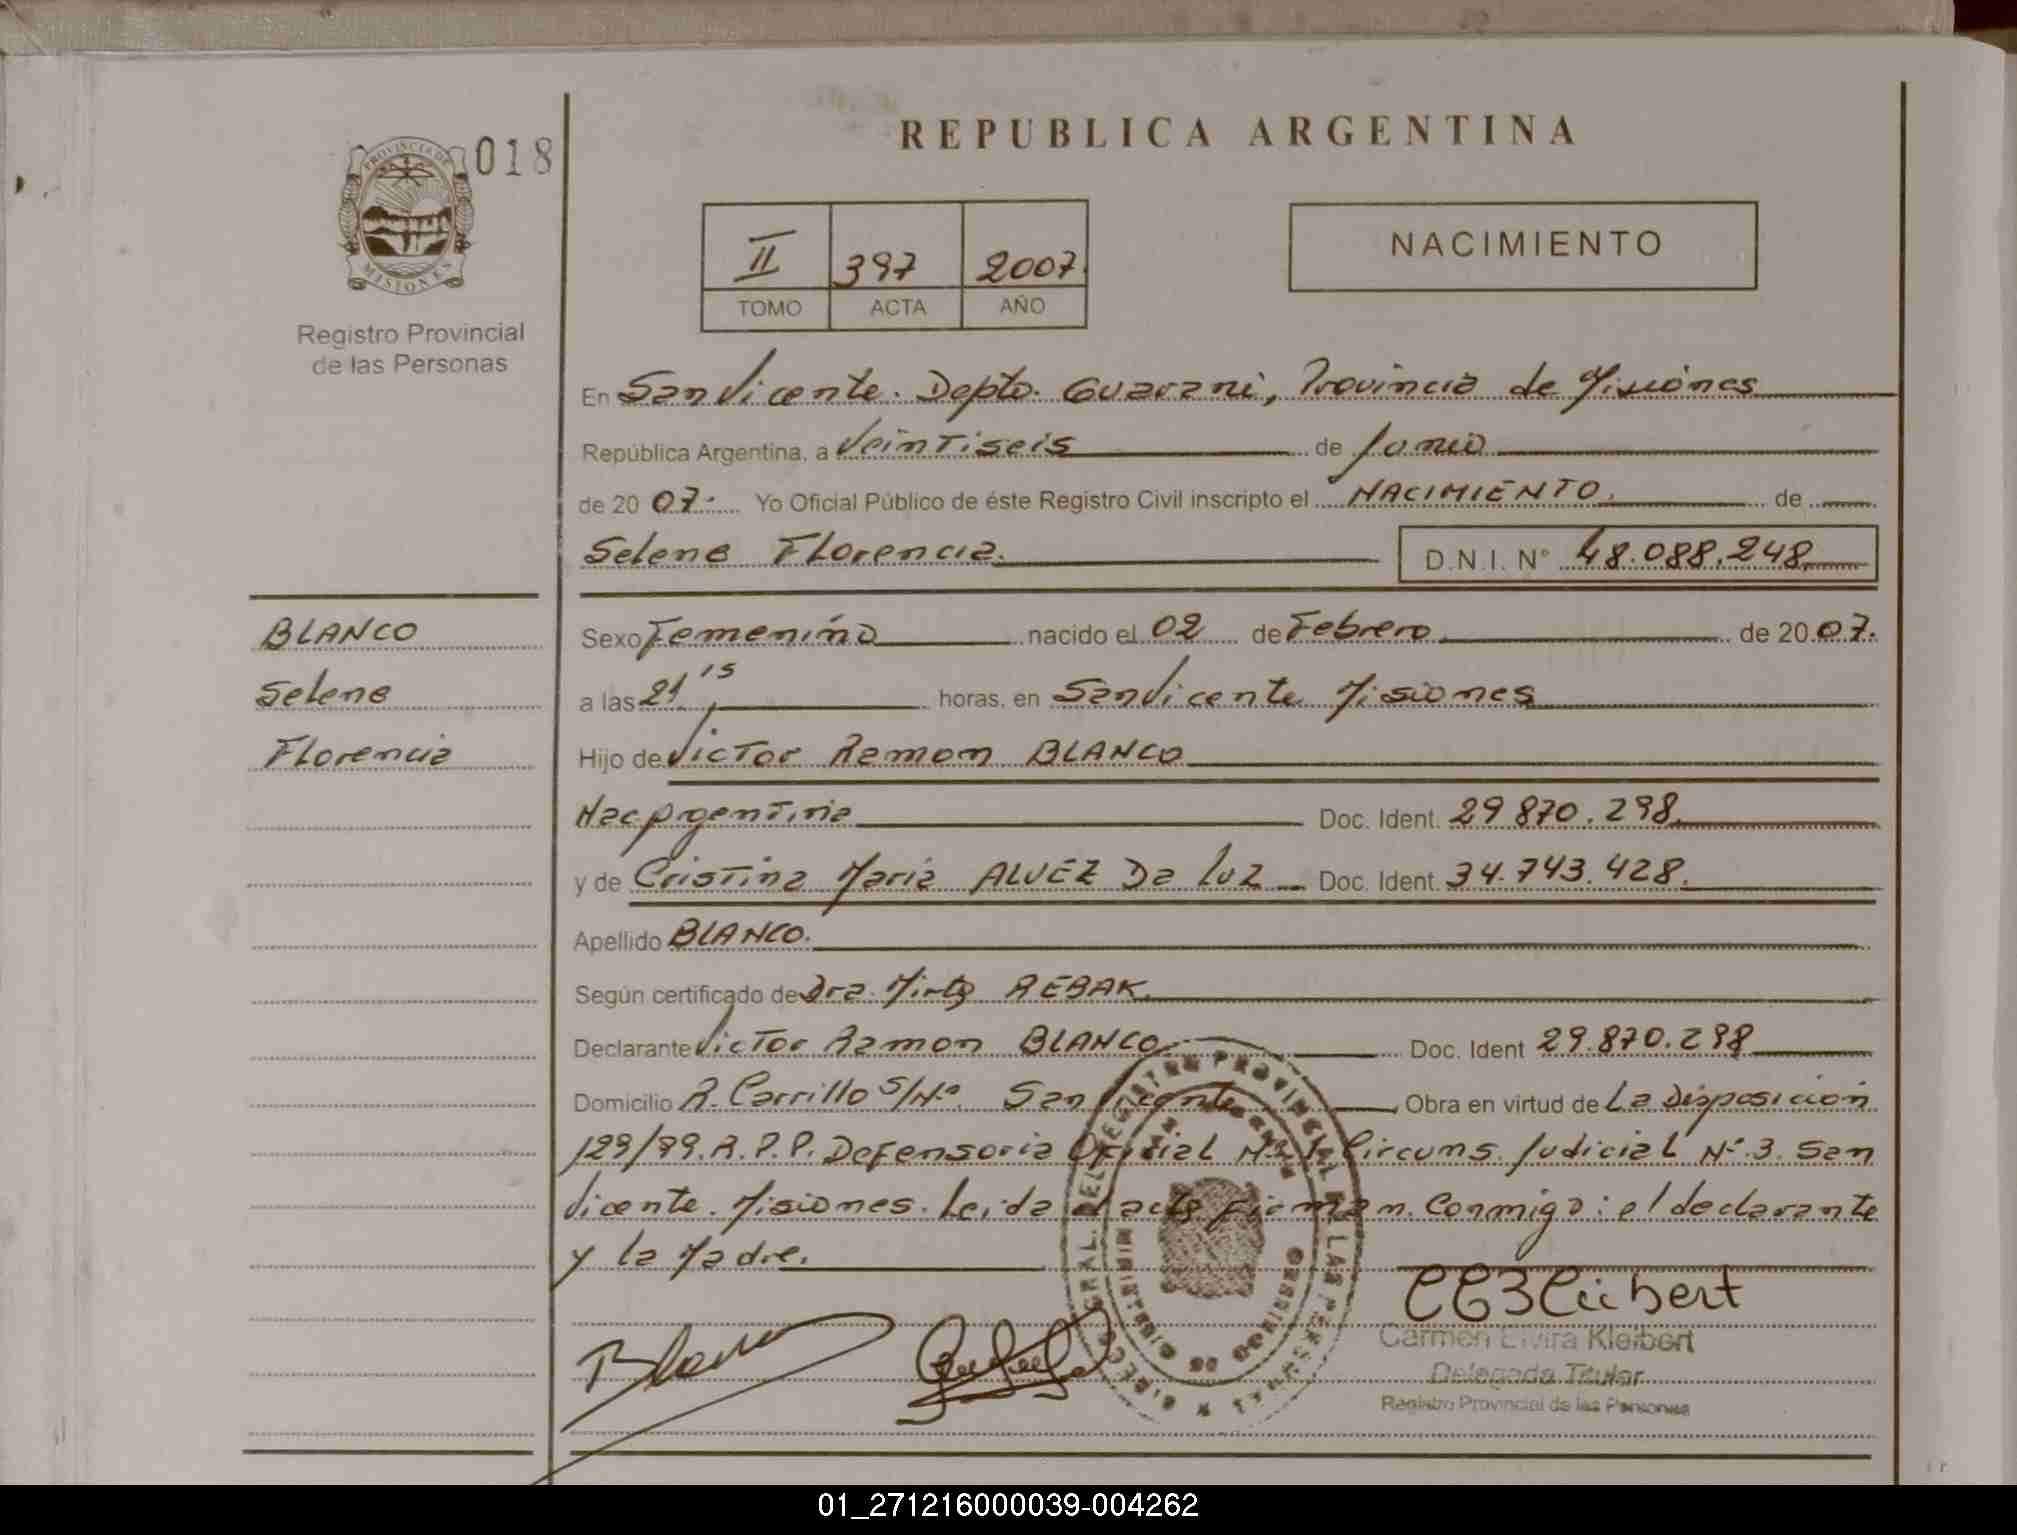 018
PROVINCIA DE
MISIONES
Registro Provincial
de las Personas
REPUBLICA ARGENTINA
II 397 2007
TOMO ACTA AÑO
NACIMIENTO
En San Vicente. Depto. Guarani, Provincia de Misiones
República Argentina, a Veintiseis de Junio
de 20 07. Yo Oficial Público de éste Registro Civil inscripto el NACIMIENTO. de
Selene Florencia. D.N.I. N° 48.088.248.
BLANCO
Selene
Florencia
Sexo Femenino nacido el 02 de Febrero de 20 07.
a las 21 15 horas, en San Vicente Misiones
Hijo de Victor Ramon BLANCO
Nac Argentina Doc. Ident. 29.870.298.
y de Cristina Maria ALVEZ Da Luz Doc. Ident. 34.743.428.
Apellido BLANCO.
Según certificado de Dra. Mirta REBAK.
Declarante Victor Ramon BLANCO Doc. Ident 29.870.298
Domicilio R. Carrillo S/Nº. San Vicente Obra en virtud de La Disposicion
199/99. R.P.P. Defensoria Oficial Nº 1 Circuns. Judicial Nº 3. San
Vicente. Misiones. Leida el acta firman conmigo: el declarante
y la Madre.
Blanco
Carmen Elvira Kleibert
Delegada Titular
Registro Provincial de las Personas
01_271216000039-004262